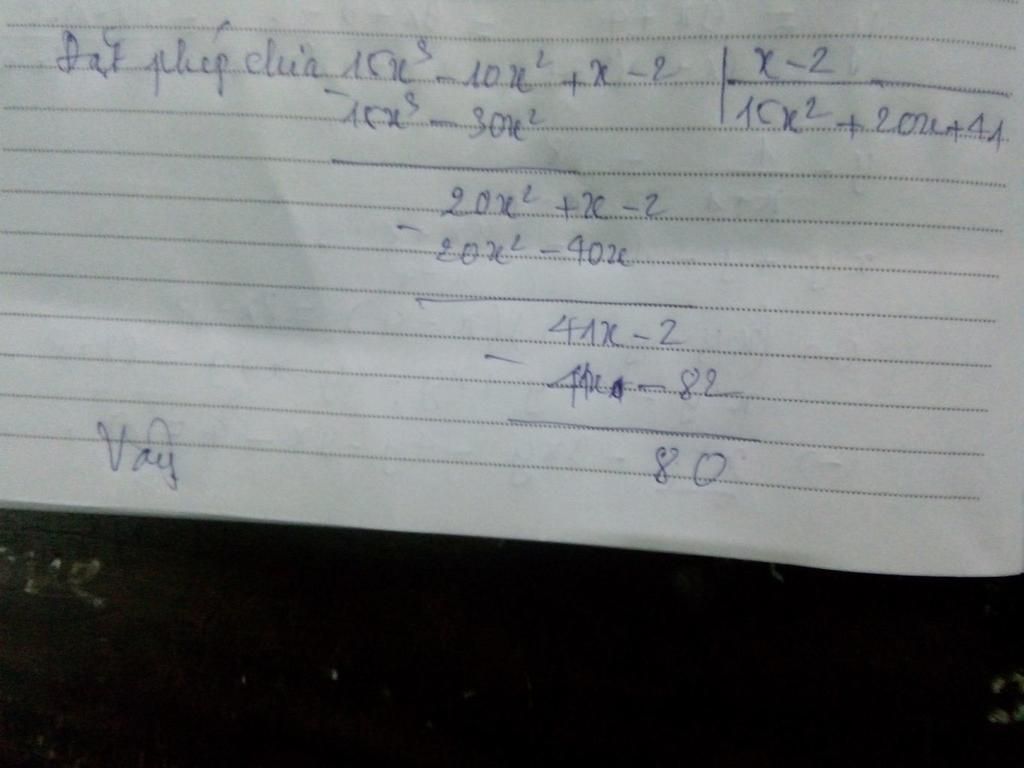 Đặt phép chia 15x³ - 10x² + x - 2 | x - 2
- 15x³ - 30x² | 15x² + 20x + 41
20x² + x - 2
- 20x² - 40x
41x - 2
- 41x - 82
Vậy 80